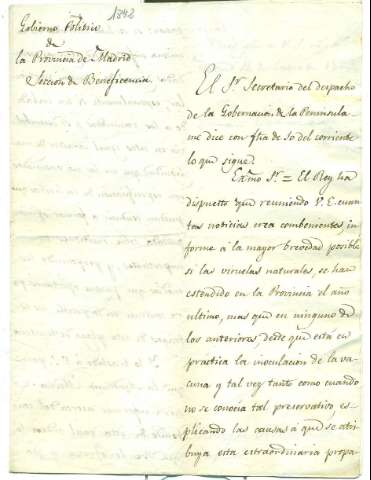 1842
Gobierno Politico
de
la Provincia de Madrid
Seccion de Beneficencia
El Sr. Secretario del despacho
de la Gobernacion de la Peninsula
me dice con fha de 30 del corriente
lo que sigue.
Exmo Sr. = El Rey ha
dispuesto que reuniendo V. E. cuan
tas noticias crea combenientes, in
forme á la mayor brevedad posible
si las viruelas naturales, se han
estendido en la Provincia el año
ultimo, mas que en ninguno de
los anteriores, desde que está en
practica la inoculacion de la va
cuna y tal vez tanto como cuando
no se conocia tal preservativo es-
plicando las causas á que se atri
buya esta extraordinaria propa